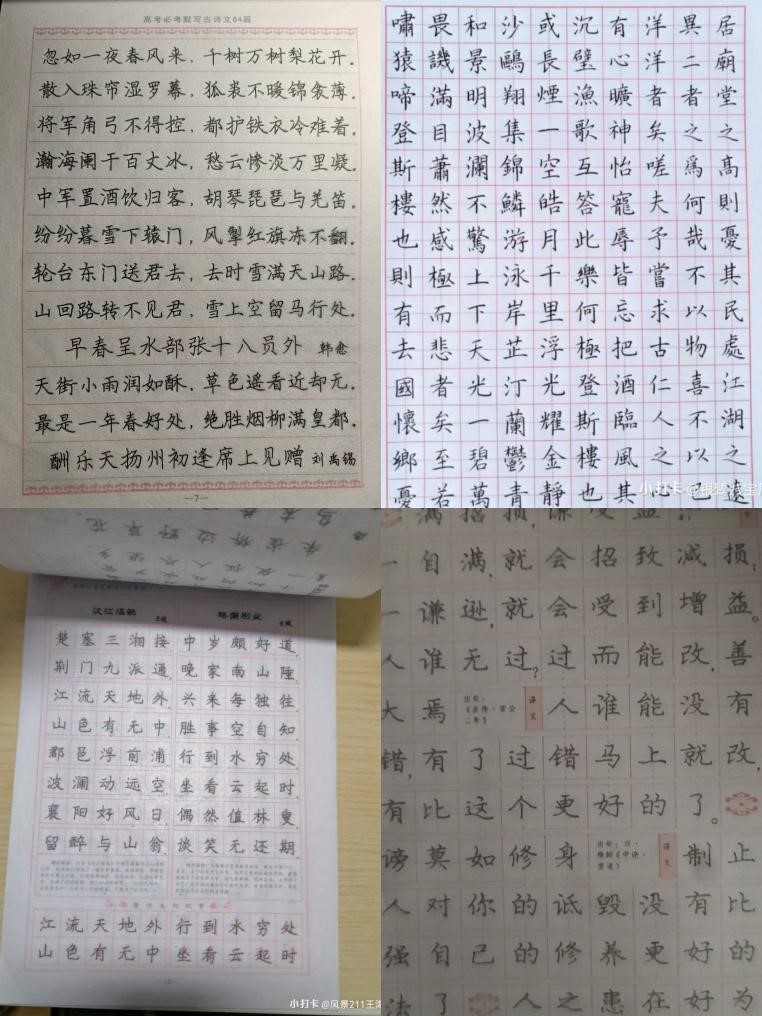 高考必考默写古诗文64篇
忽如一夜春风来，千树万树梨花开。
散入珠帘湿罗幕，狐裘不暖锦衾薄。
将军角弓不得控，都护铁衣冷难着。
瀚海阑干百丈冰，愁云惨淡万里凝。
中军置酒饮归客，胡琴琵琶与羌笛。
纷纷暮雪下辕门，风掣红旗冻不翻。
轮台东门送君去，去时雪满天山路。
山回路转不见君，雪上空留马行处。
早春呈水部张十八员外 韩愈
天街小雨润如酥，草色遥看近却无。
最是一年春好处，绝胜烟柳满皇都。
酬乐天扬州初逢席上见赠 刘禹锡
—7—
居廟堂之高則憂其民處江湖之遠
異二者之爲何哉不以物喜不以己
洋洋者矣嗟夫予嘗求古仁人之
有心曠神怡寵辱皆忘把酒臨風其
沉璧漁歌互答此樂何極登斯樓也
或長煙一空皓月千里浮光耀金靜
沙鷗翔集錦鱗游泳岸芷汀蘭鬱青
和景明波瀾不驚上下天光一碧萬
畏譏滿目蕭然感極而悲者矣至若
嘯猿啼登斯樓也則有去國懷鄉憂
小打卡
朱雀桥边野草花
汉江临眺 王维
楚塞三湘接
荆门九派通
江流天地外
山色有无中
郡邑浮前浦
波澜动远空
襄阳好风日
留醉与山翁
终南别业 王维
中岁颇好道
晚家南山陲
兴来每独往
胜事空自知
行到水穷处
坐看云起时
偶然值林叟
谈笑无还期
江流天地外 行到水穷处
山色有无中 坐看云起时
小打卡 @风景211王海
满招损，谦受益。
一自满，就会招致减损；
一谦逊，就会受到增益。
人谁无过？过而能改，善
大焉 出处：《左传·宣公二年》 译文 人谁能没有
错，有了过错马上就改，
有比这个更好的了。
谤莫如修身 译文 制止
人对你的诋毁没有比
强自己的修养更好的
法了 人之患在好为